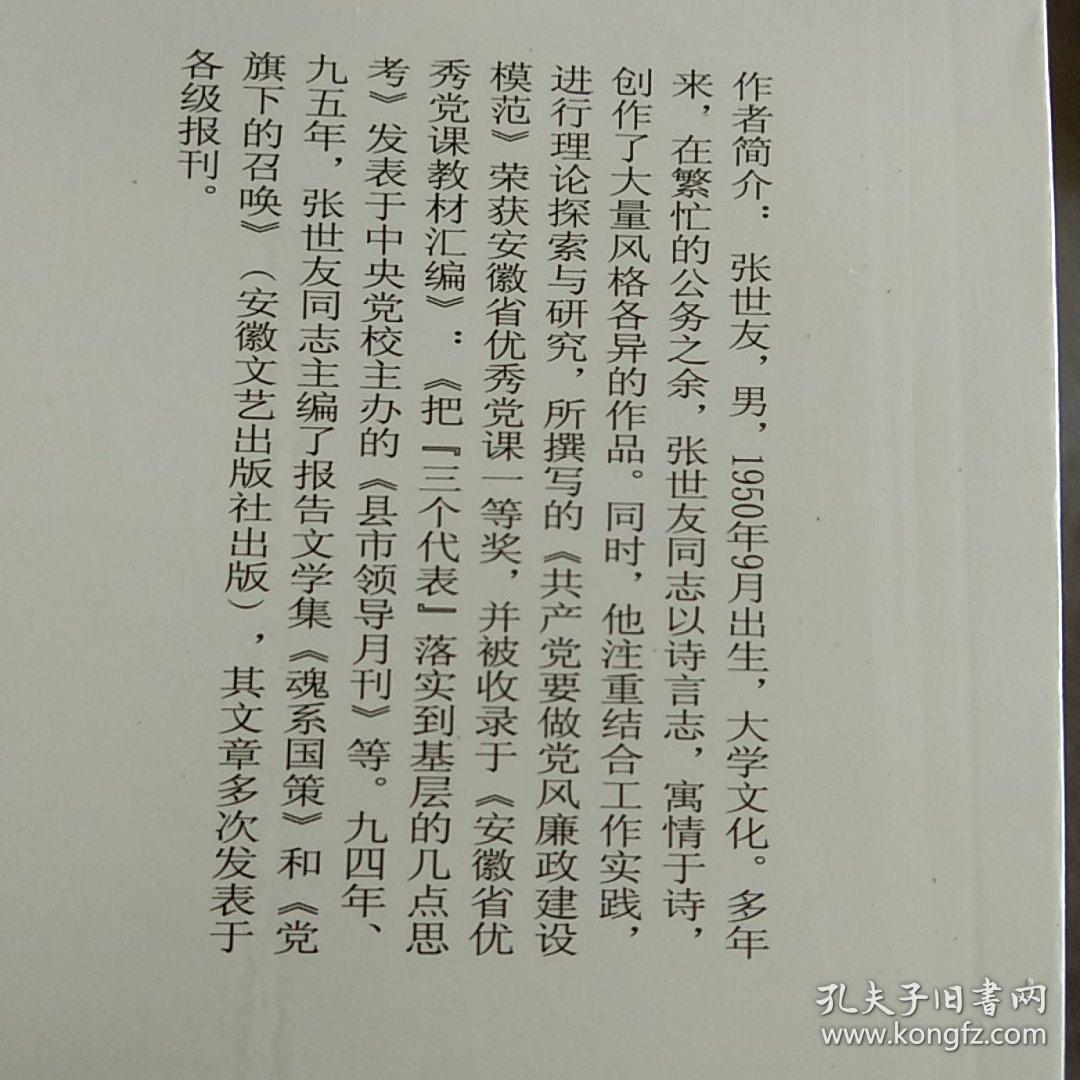 作者简介： 张世友，男，1950年9月出生，大学文化。多年
来，在繁忙的公务之余，张世友同志以诗言志，寓情于诗，
创作了大量风格各异的作品。同时，他注重结合工作实践，
进行理论探索与研究，所撰写的《共产党要做党风廉政建设
模范》荣获安徽省优秀党课一等奖，并被收录于《安徽省优
秀党课教材汇编》：《把『三个代表』落实到基层的几点思
考》发表于中央党校主办的《县市领导月刊》等。九四年、
九五年，张世友同志主编了报告文学集《魂系国策》和《党
旗下的召唤》（安徽文艺出版社出版），其文章多次发表于
各级报刊。
孔夫子旧书网
www.kongfz.com